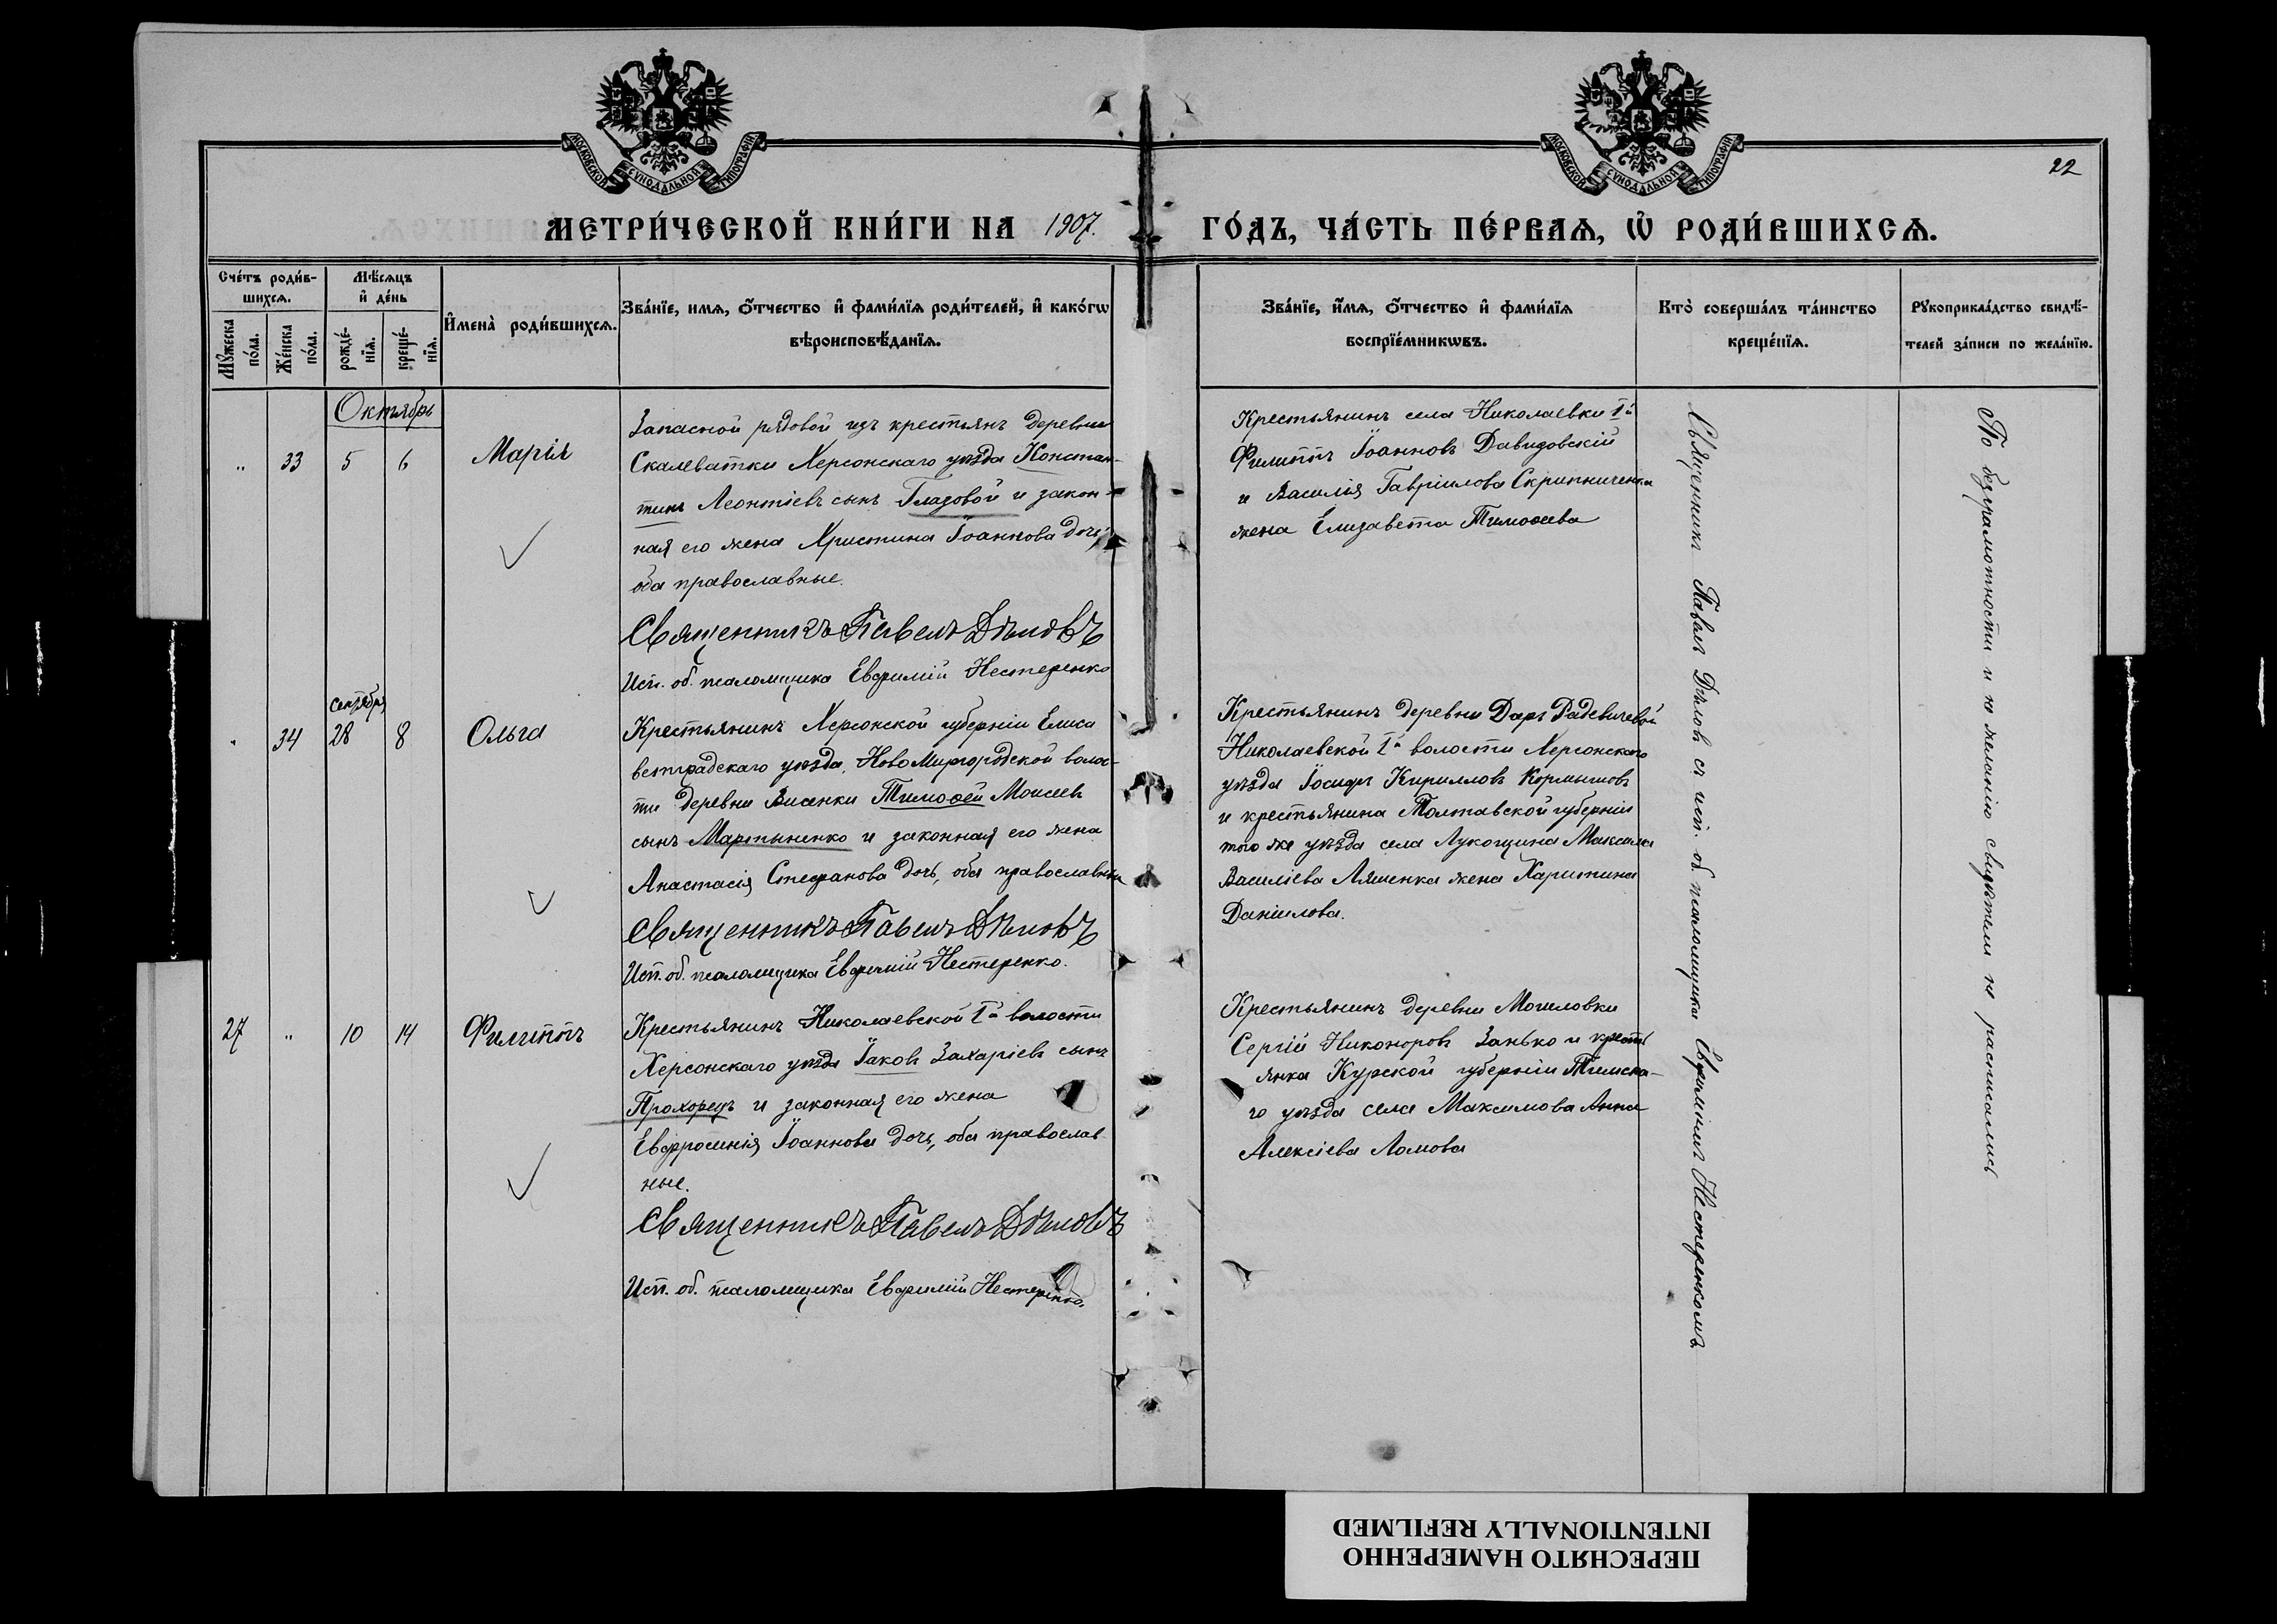 МОСКОВСКОЙ СѴНОДАЛЬНОЙ ТИПОГРАФІИ
МОСКОВСКОЙ СѴНОДАЛЬНОЙ ТИПОГРАФІИ
22
МЕТРИ́ЧЕСКОЙ КНИ́ГИ НА 1907.
ГО́ДЪ, ЧА́СТЬ ПЕ́РВАѦ, Ѡ҆ РОДИ́ВШИХСѦ.
Сче́тъ роди́в-
шихсѧ.
Мꙋжеска по́ла.
Же́нска по́ла.
Мѣ́сѧцъ
и҆ де́нь
рожде́-
нїѧ.
креще́-
нїѧ.
И҆мена̀ роди́вшихсѧ.
Зва́нїе, имѧ, ѻ҆́тчество и҆ фами́лїѧ роди́телей, и҆ како́гѡ
вѣроисповѣ́данїѧ.
Зва́нїе, и҆́мѧ, ѻ҆́тчество и҆ фами́лїѧ
воспрїе́мникѡвъ.
Кто̀ соверша́лъ та́инство
креще́нїѧ.
Рꙋкоприкла́дство свидѣ́-
телей за́писи по жела́нїю.
Октябрь
" 33 5 6 Марія
Запасной рядовой изъ крестьянъ деревни
Скалеватки Херсонскаго уѣзда Констан-
тинъ Леонтіевъ сынъ Гладовой и закон-
ная его жена Христина Іоаннова дочь,
оба православные.
Священникъ Павелъ Дѣловъ
Исп. об. псаломщика Евфимій Нестеренко
Крестьянинъ села Николаевки 1й
Филиппъ Іоанновъ Давидовскій
и Василія Гавріилова Скрипниченка
жена Елизавета Тимоѳеева
сентября
" 34 28 8 Ольга
Крестьянинъ Херсонской губерніи Елиса
ветградскаго уѣзда, Ново Миргородской волос-
ти деревни Висенки Тимоѳей Моисеевъ
сынъ Мартыненко и законная его жена
Анастасія Стефанова дочь, оба православные
Священникъ Павелъ Дѣловъ
Исп. об. псаломщика Евфимій Нестеренко.
Крестьянинъ деревни Даръ Радевичевой
Николаевской 1й волости Херсонскаго
уѣзда Іосифъ Кирилловъ Кормышовъ
и крестьянина Полтавской губерніи
того же уѣзда села Лукощина Максима
Василіева Ляшенка жена Харитина
Даніилова.
27 " 10 14 Филиппъ
Крестьянинъ Николаевской 1й волости
Херсонскаго уѣзда Іаковъ Захаріевъ сынъ
Прохорецъ и законная его жена
Евфросинія Іоаннова дочь, оба православ
ные.
Священникъ Павелъ Дѣловъ
Исп. об. псаломщика Евфимій Нестеренко.
Крестьянинъ деревни Могиловки
Сергій Никоноровъ Занько и кресть
янка Курской губерніи Тимска-
го уѣзда села Максимова Анна
Алексіева Ломова
Священникъ Павелъ Дѣловъ съ исп. об. псаломщика Евфиміемъ Нестеренкомъ
По безграмотности и не желанію свидѣтели не расписались
ПЕРЕСНЯТО НАМЕРЕННО
INTENTIONALLY REFILMED